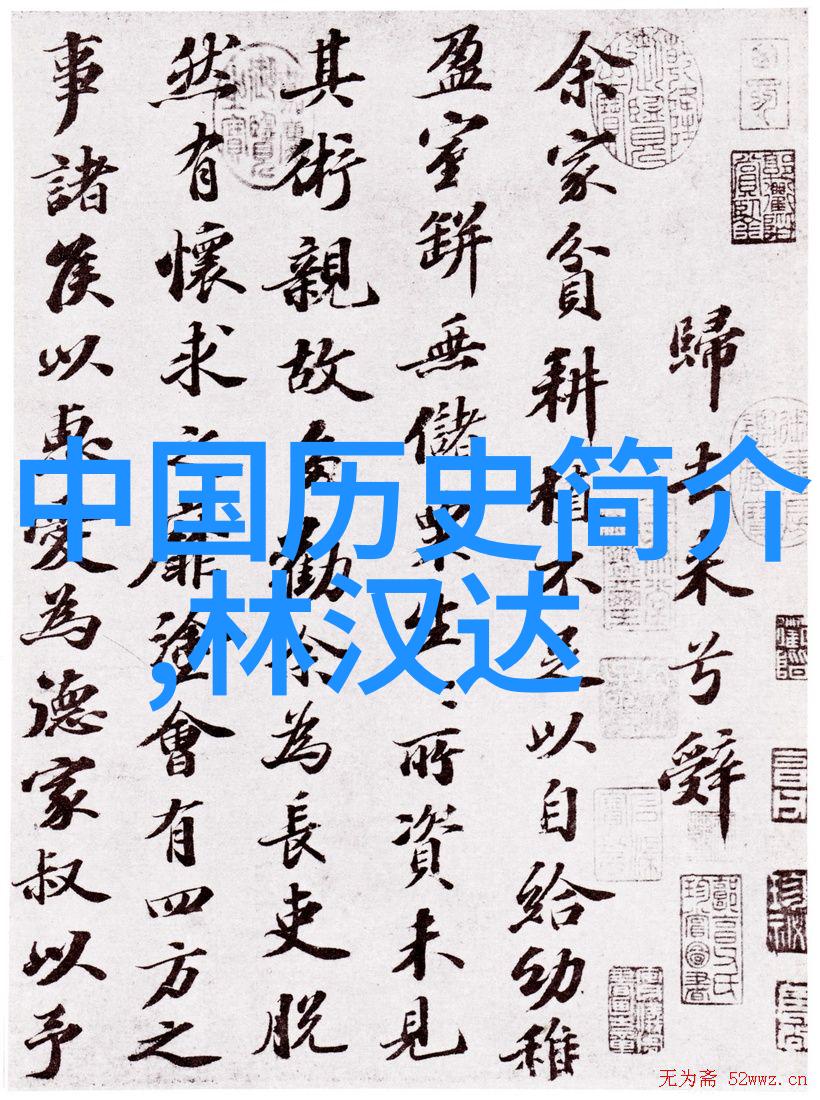 歸去来兮辭
余家貧耕植不足以自給幼稚
盈室缾無儲粟生〻所資未見
其術親故多勸余為長吏脫
然有懷求之靡途會有四方之
事諸侯以惠愛為德家叔以予
中国历史简介
,林汉达
无为斋 52wwz.cn